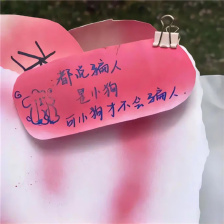 都说骗人
是小狗
可小狗才不会骗人